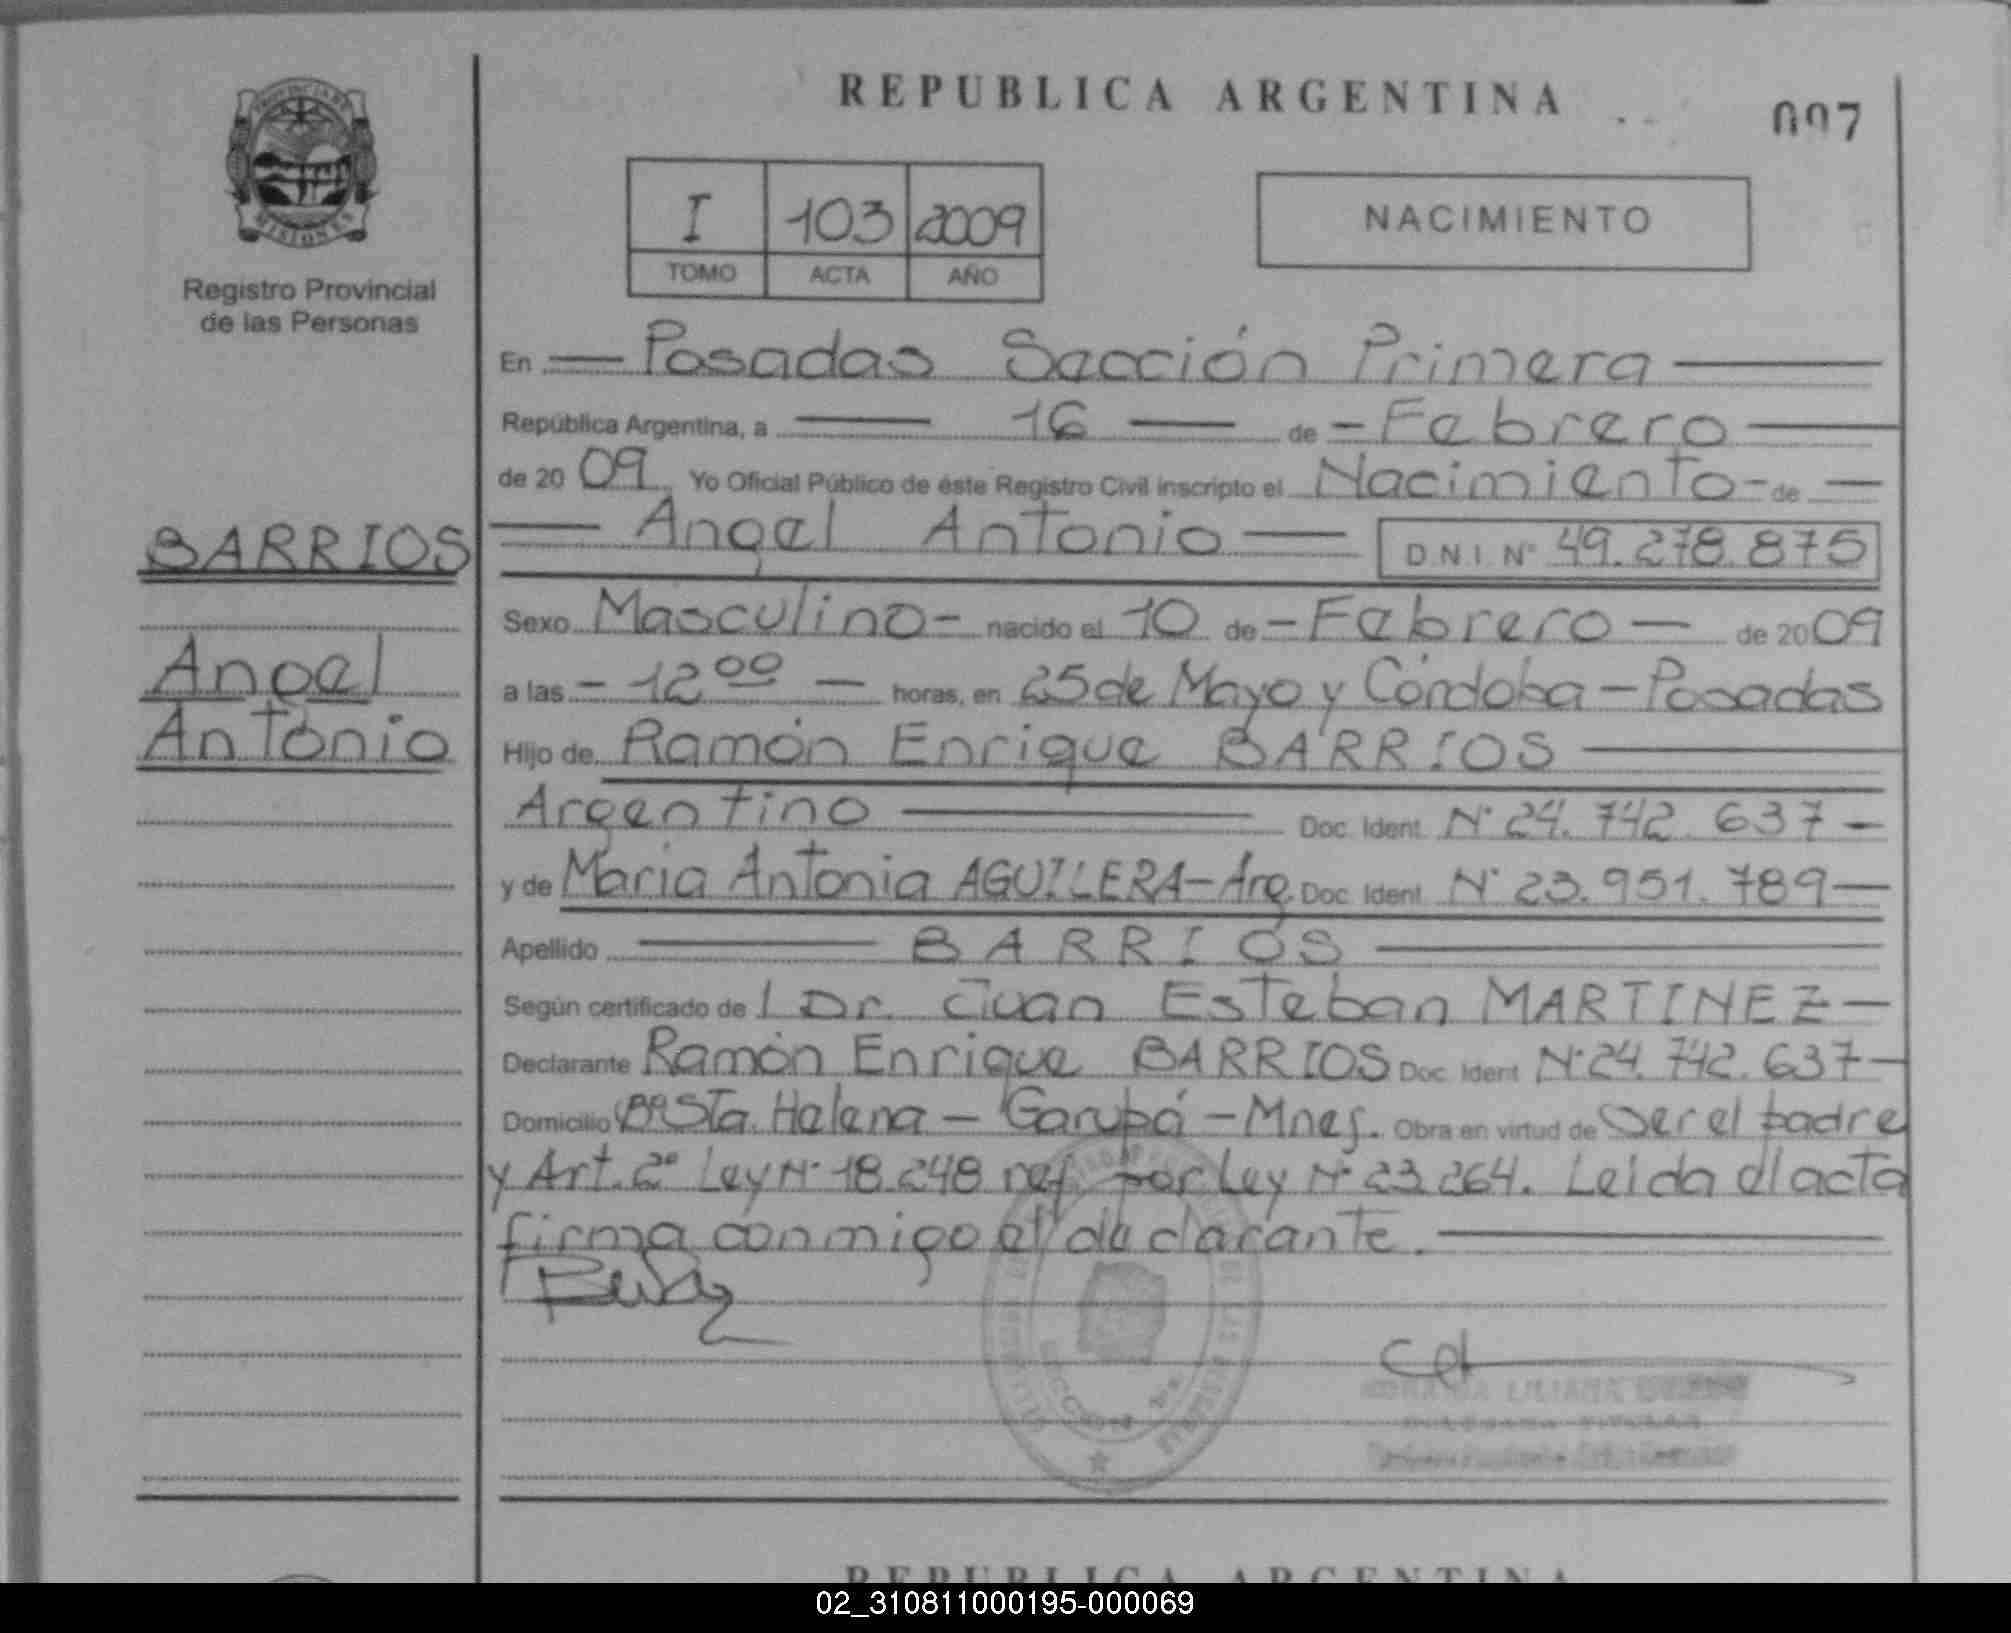 REPUBLICA ARGENTINA
097
PROVINCIA DE
MISIONES
Registro Provincial
de las Personas
I 103 2009
TOMO ACTA AÑO
NACIMIENTO
En Posadas Sección Primera
República Argentina, a 16 de Febrero
de 20 09 Yo Oficial Público de éste Registro Civil inscripto el Nacimiento de
BARRIOS
Angel Antonio D.N.I. Nº 49.278.875
Sexo Masculino - nacido el 10 de - Febrero - de 20 09
Angel
a las - 12 00 - horas, en 25 de Mayo y Córdoba - Posadas
Antonio
Hijo de Ramón Enrique BARRIOS
Argentino Doc. Ident. Nº 24.742.637 -
y de María Antonia AGUILERA - Arg. Doc. Ident. Nº 23.951.789 -
Apellido BARRIOS
Según certificado de Dr. Juan Esteban MARTINEZ -
Declarante Ramón Enrique BARRIOS Doc. Ident. Nº 24.742.637 -
Domicilio Bº Sta. Helena - Garupá - Mnes. Obra en virtud de ser el padre
y Art. 2º Ley Nº 18.248 ref. por Ley Nº 23.264. Leida el acta
firma conmigo el declarante.
LILIANA
REPUBLICA ARGENTINA
02_310811000195-000069